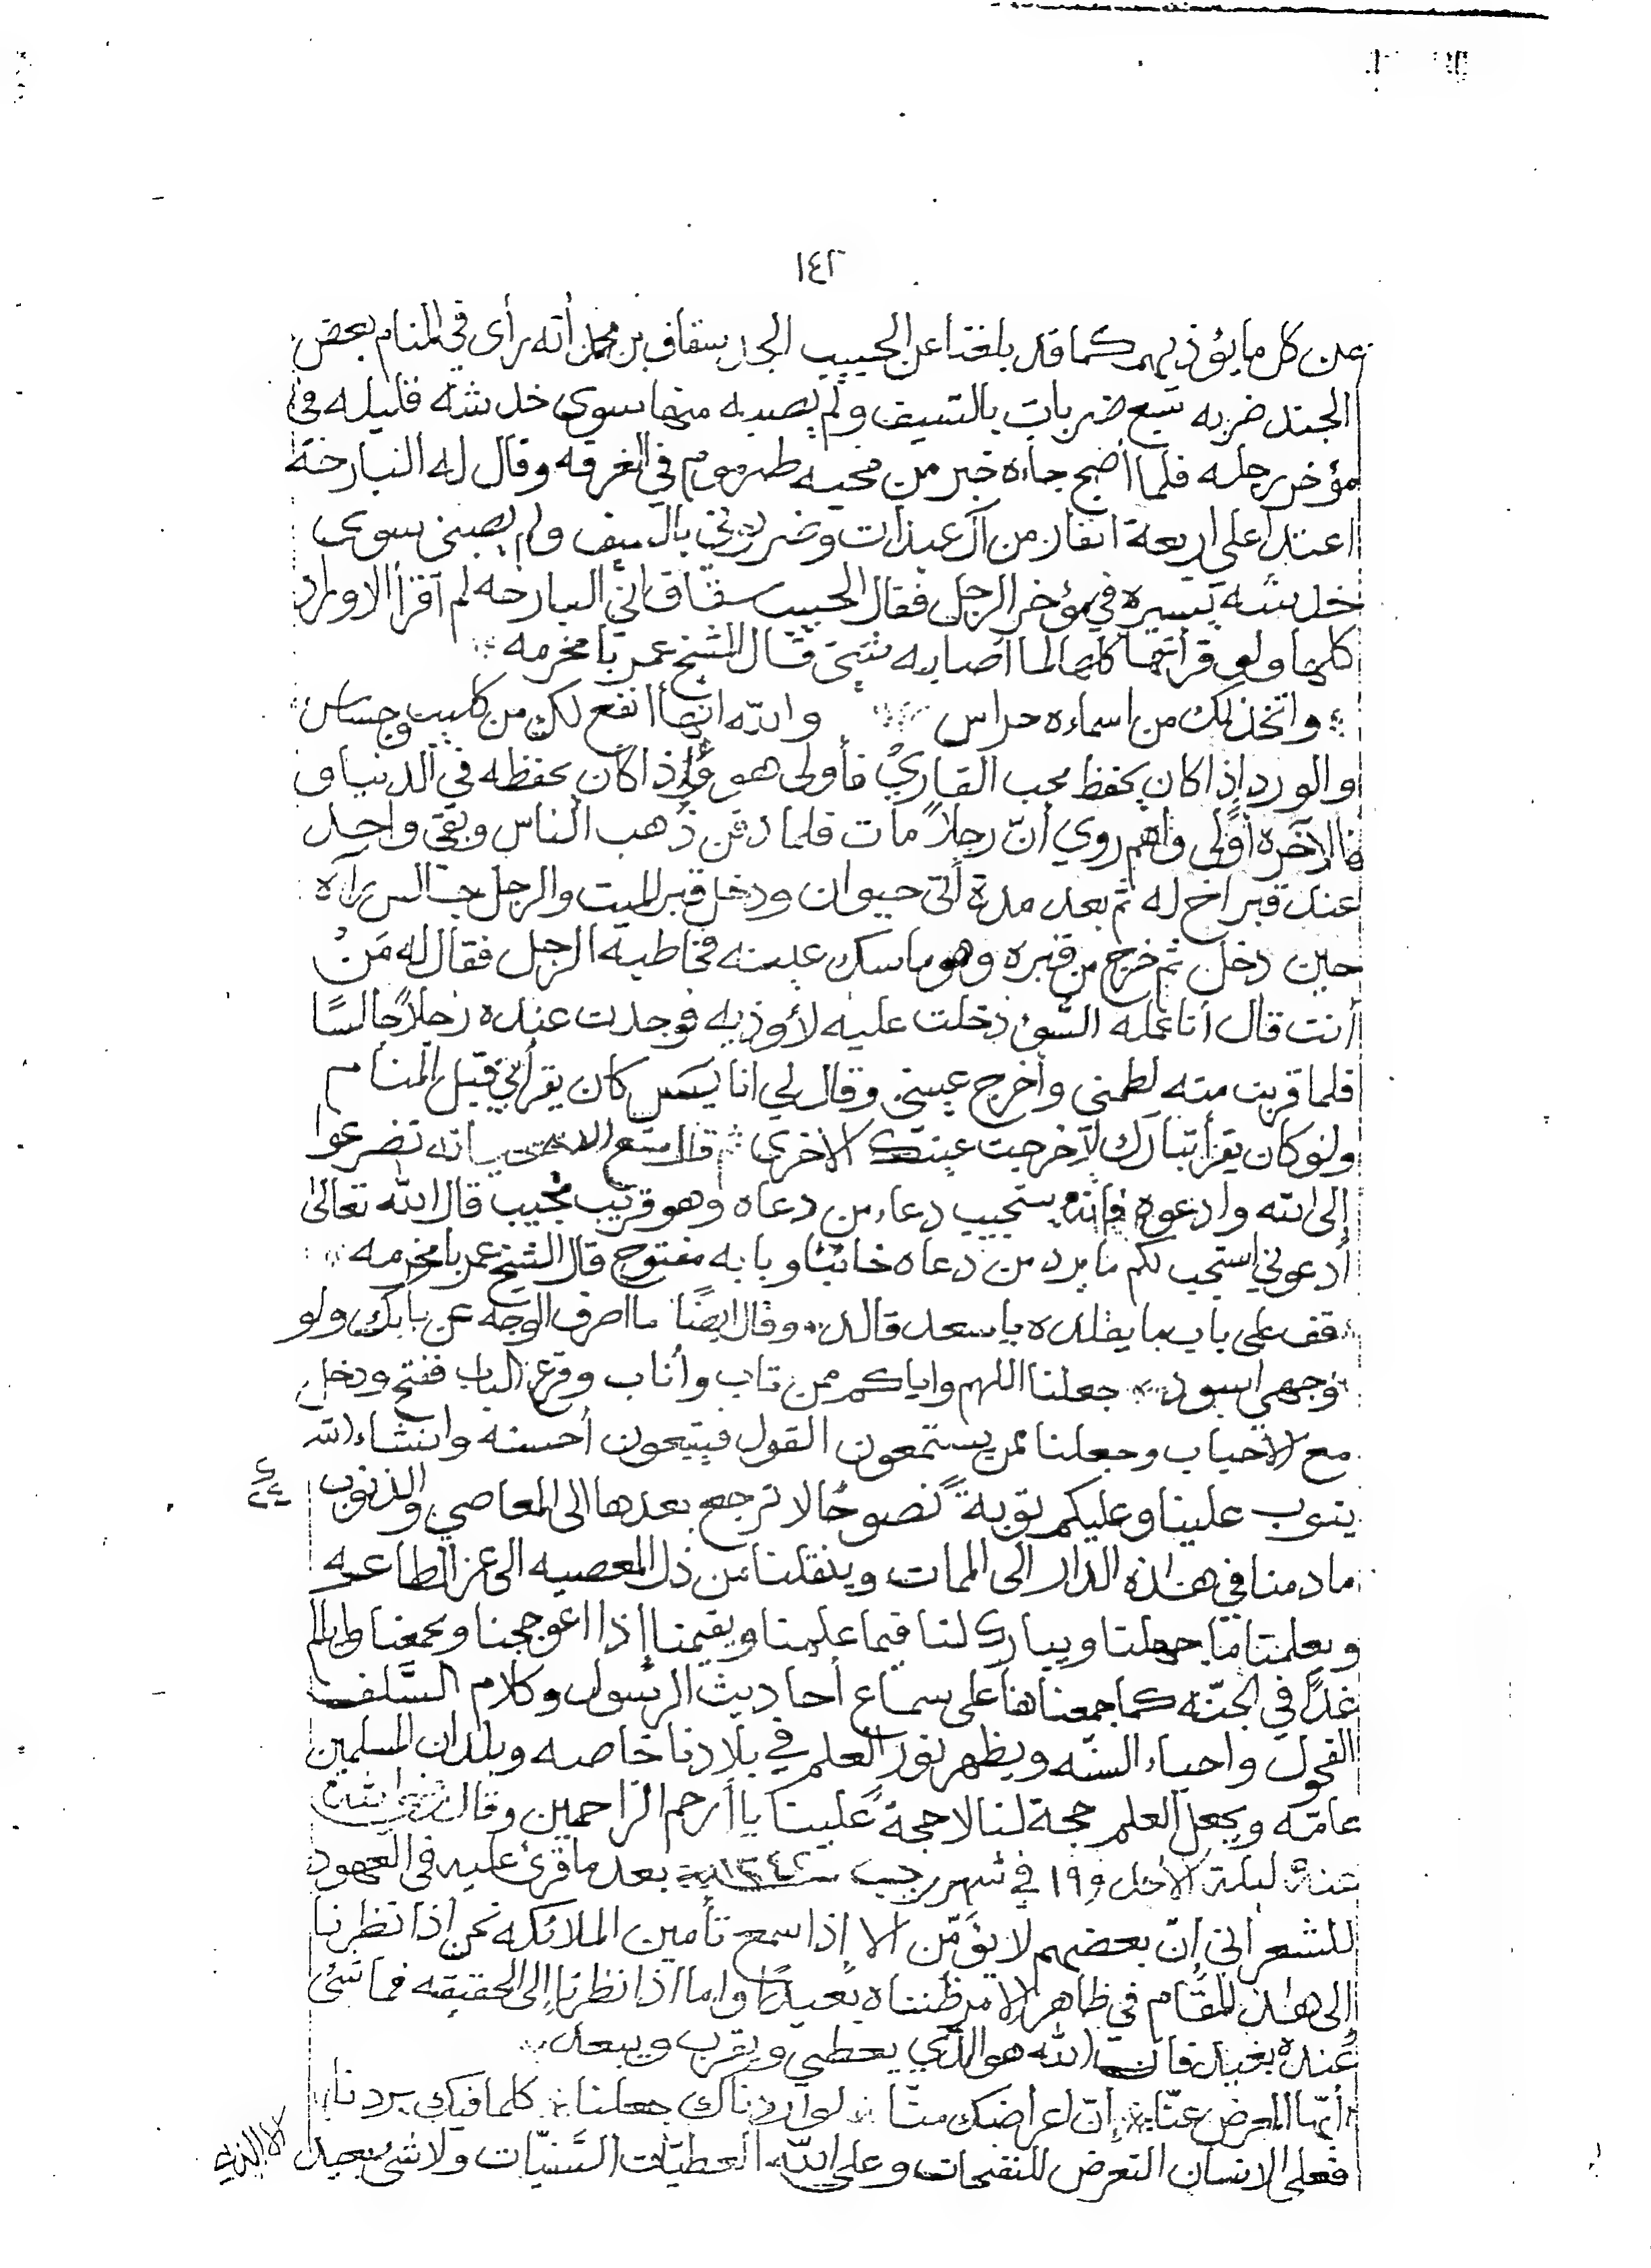 ١٤٢
عن كل ما يؤذيهم كما قد بلغنا عن الحبيب الجد سقاف بن محمد أنه رأى في المنام بعض
الجند ضربه سبع ضربات بالسيف ولم يصبه منها سوى خدشه قليله في
مؤخر رجله فلما أصبح جاءه خبر من محبه في الغرفه وقال له البارحة
اعتدا علي اربعة انفار من آل عبدات وضربوني بالسيف ولم يصبني سوى
خدشه يسيره في مؤخر الرجل فقال الحبيب سقاف اني البارحه لم أقرأ الاوراد
كلها ولو قرأتها كلها لما أصابه شئ قال الشيخ عمر بامخرمه
واتخذ لك من اسماءه حراس والله انها أنفع لك من كليب وجساس
والورد إذا كان يحفظ محب القاري فأولى هو وإذا كان يحفظه في الدنيا ف
في الآخره أولى وأهم روي أنّ رجلاً مات فلما دفن ذهب الناس وبقي واحد
عند قبر اخ له ثم بعد مدة أتى حيوان ودخل قبر الميت والرجل جالس رآه
حين دخل ثم خرج من قبره وهو ماسك عينه فخاطبه الرجل فقال له مَنْ
أنت قال أنا عمله السّوء دخلت عليه لأوذيه فوجدت عنده رجلاً جالسًا
فلما قربت منه لطمني وأخرج عيني وقال لي انا يسس كان يقرأني قبل المنام
ولو كان يقرأ تبارك لآخرجت عينك الاخرى قال تضرعوا
إلى الله وادعوه فإنه يستجيب دعاء من دعاه وهو قريب مجيب قال الله تعالى
أدعوني استجب لكم ما يرد من دعاه خائبًا وبابه مفتوح قال الشيخ عمر بامخرمه
قف على باب ما يقلده يا سعد قالد وقال ايضًا ما اصرف الوجه عن بابك ولو
وجهي اسود جعلنا اللهم واياكم ممن تاب وأناب وقرع الباب ففتح ودخل
مع الأحباب وجعلنا ممن يستمعون القول فيتبعون أحسنه وانشاء الله
يتوب علينا وعليكم توبةً نصوحًا لا نرجع بعدها الى المعاصي والذنوب
ما دمنا في هذه الدار الى الممات وينقلنا من ذل المعصيه الى عز الطاعه
ويعلمنا ما جهلنا ويبارك لنا فيما علمنا ويقيمنا إذا اعوججنا ويجمعنا واياكم
غدًا في الجنّة كما جمعنا هنا على سماع أحاديث الرسول وكلام السَّلف
الفحول واحياء السنّه ويظهر نور العلم في بلادنا خاصه وبلدان المسلمين
عامّه ويجعل العلم حجة لنا لا حجةً علينا يا أرحم الراحمين وقال
ليلة الأحد ١٩ في شهر رجب سنة ١٣٤٢ بعد ما قرئ عليه في العهود
للشعراني إنّ بعضهم لا يؤمّن الا إذا سمع تأمين الملائكه نحن إذا نظرنا
إلى هذا المقام في ظاهر الامر ظنناه بعيدًا واما اذا نظرنا إلى الحقيقه فما شئ
عنده بعيد فإن الله هو الّذي يعطي ويقرب ويبعد
أيّها المعرض عنّا إنّ اعراضك منّا لو أردناك جعلنا كلما فيك يردنا
فعلى الانسان التعرض للنفحات وعلى الله العطيّات السَّنيّات ولا شئ بعيد